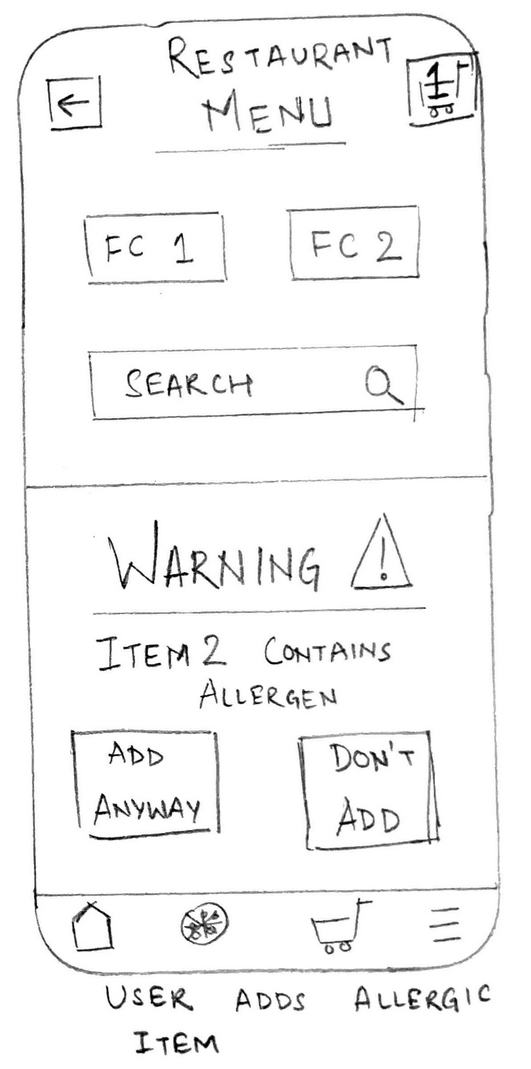 RESTAURANT
MENU
1
FC 1
FC 2
SEARCH
WARNING !
ITEM 2 CONTAINS
ALLERGEN
ADD
ANYWAY
DON'T
ADD
USER ADDS ALLERGIC
ITEM